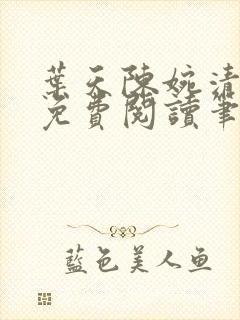 葉天陳婉清
免費閱讀筆
藍色美人鱼